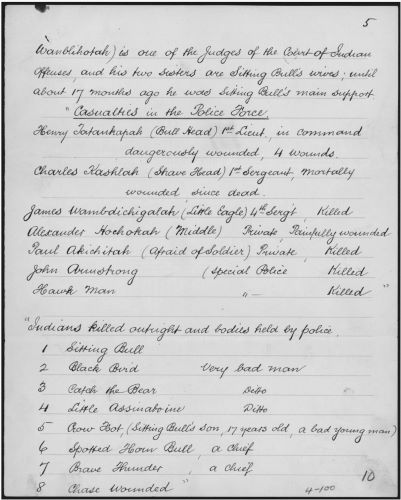 5
Wanblihotah) is one of the Judges of the Court of Indian
Offenses, and his two sisters are Sitting Bull's wives; until
about 17 months ago he was Sitting Bull's main support
"Casualties in the Police Force.
Henry Tatankapah (Bull Head) 1st Lieut, in command
dangerously wounded, 4 wounds.
Charles Kashlah (Shave Head) 1st Sergeant, mortally
wounded since dead.
James Wambdichigalah (Little Eagle) 4th Sergt, Killed
Alexander Hochokah (Middle) Private, Painfully wounded
Paul Akichitah (Afraid of Soldier) Private, Killed
John Armstrong (Special Police Killed
Hawk Man "— Killed "
"Indians killed outright and bodies held by police.
1 Sitting Bull
2 Black Bird Very bad man
3 Catch the Bear Ditto
4 Little Assinaboine Ditto
5 Crow Foot, (Sitting Bull's son, 17 years old, a bad young man)
6 Spotted Horn Bull, a chief
7 Brave Thunder, a chief
8 Chase Wounded"
4-100
10